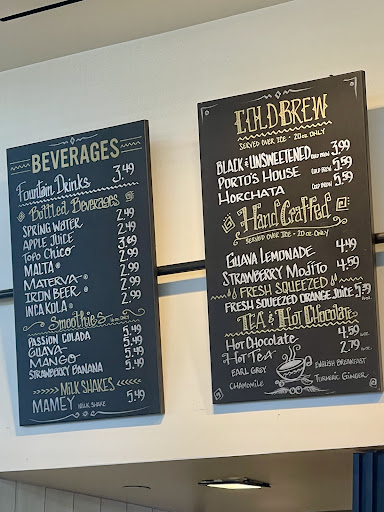 BEVERAGES
Fountain Drinks 3.49
Bottled Beverages
SPRING WATER 2.49
APPLE JUICE 2.49
TOPO CHICO® 3.69
MALTA® 2.49
MATERVA® 2.49
IRON BEER® 2.49
INCA KOLA® 2.49
Smoothies
PASSION COLADA 5.49
GUAVA 5.49
MANGO 5.49
STRAWBERRY BANANA 5.49
MILK SHAKES
MAMEY MILK SHAKE 5.49
COLD BREW
SERVED OVER ICE - 20oz ONLY
BLACK & UNSWEETENED COLD BREW 3.99
PORTO'S HOUSE COLD BREW 5.59
HORCHATA COLD BREW 5.59
Hand Crafted
SERVED OVER ICE - 20oz ONLY
GUAVA LEMONADE 4.49
STRAWBERRY MOJITO 4.59
FRESH SQUEEZED
FRESH SQUEEZED ORANGE JUICE 5.39
TEA & Hot Chocolate
Hot Chocolate 4.59
Hot Tea 2.79
EARL GREY ENGLISH BREAKFAST
CHAMOMILE TURMERIC GINGER